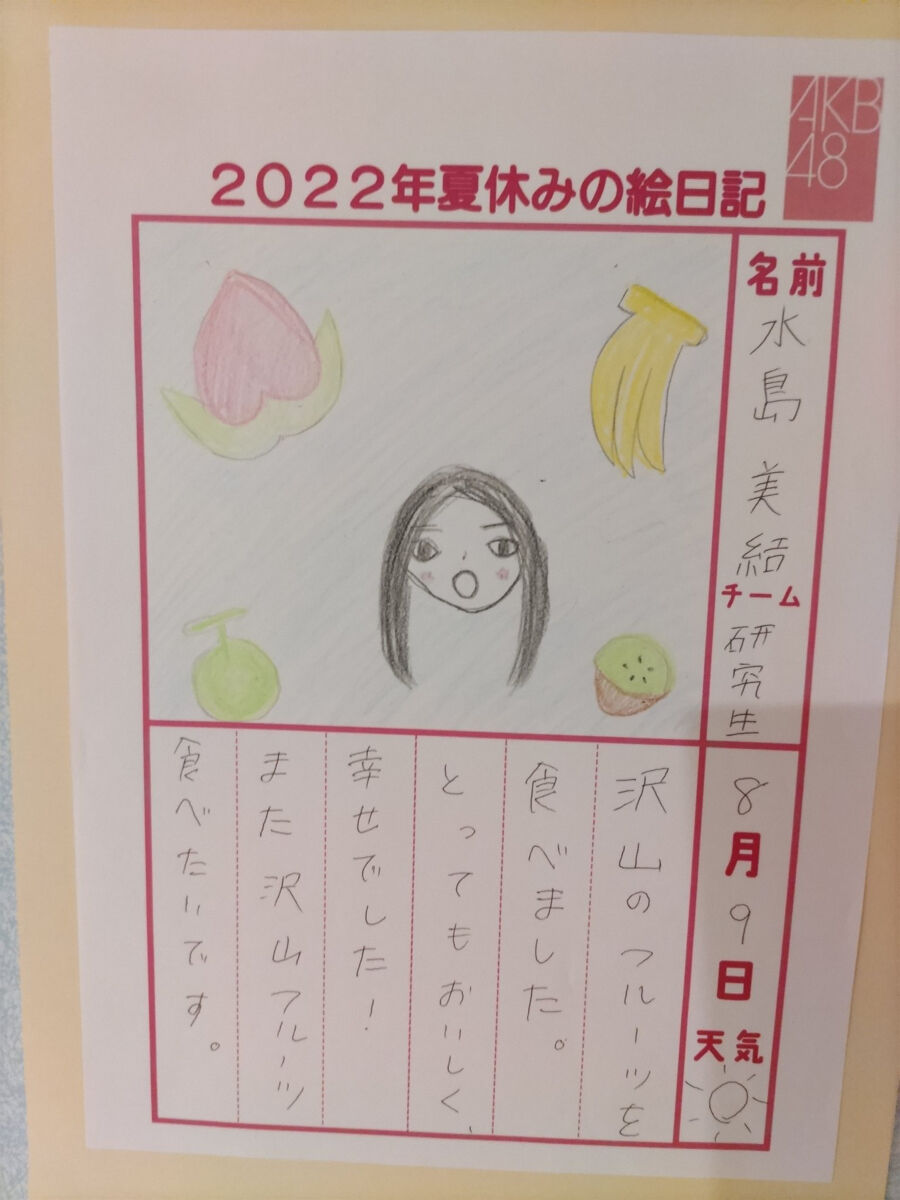 AKB
48
2022年夏休みの絵日記
名前
水島 美結
チーム
研究生
8月9日
天気
沢山のフルーツを
食べました。
とってもおいしく、
幸せでした!
また沢山フルーツ
食べたいです。